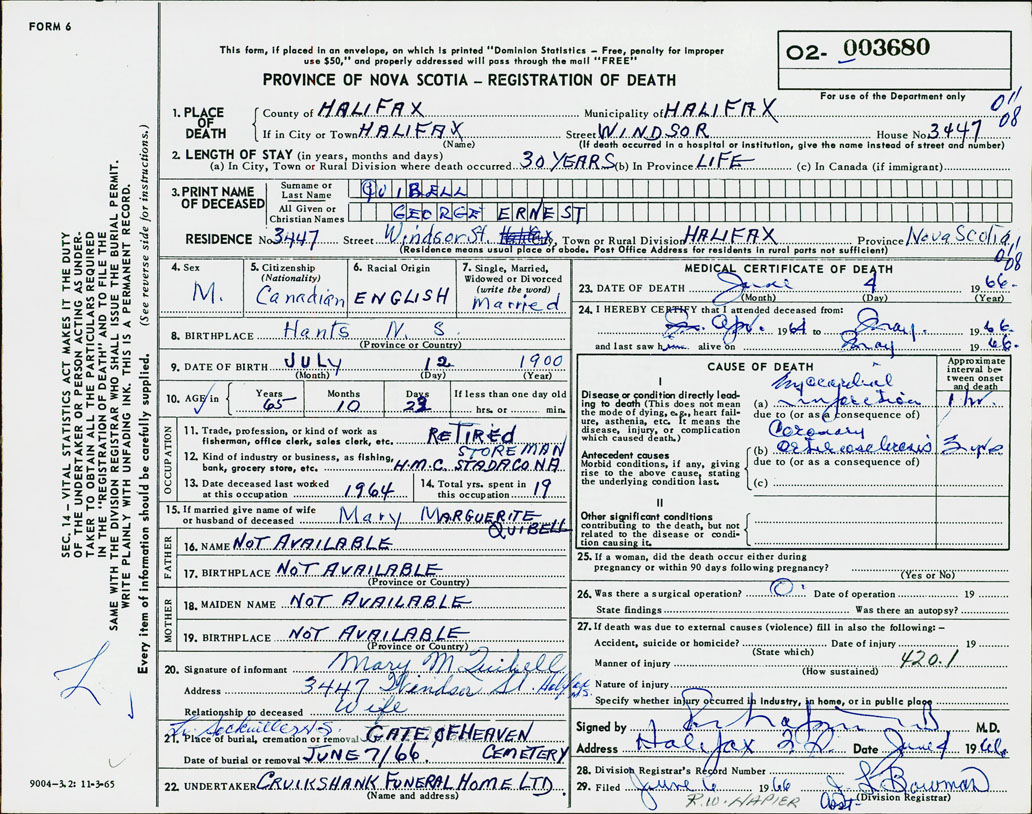 FORM 6
This form, if placed in an envelope, on which is printed "Dominion Statistics – Free, penalty for improper
use $50," and properly addressed will pass through the mail "FREE"
PROVINCE OF NOVA SCOTIA – REGISTRATION OF DEATH
O2- 003680
For use of the Department only
011
08
1. PLACE OF DEATH
County of HALIFAX Municipality of HALIFAX
If in City or Town HALIFAX Street WINDSOR House No. 3447
(Name) (If death occurred in a hospital or institution, give the name instead of street and number)
2. LENGTH OF STAY (in years, months and days)
(a) In City, Town or Rural Division where death occurred 30 YEARS (b) In Province LIFE (c) In Canada (if immigrant)
3. PRINT NAME OF DECEASED
Surname or Last Name QUIBELL
All Given or Christian Names GEORGE ERNEST
RESIDENCE No. 3447 Street Windsor St. City, Town or Rural Division HALIFAX Province Nova Scotia
(Residence means usual place of abode. Post Office Address for residents in rural parts not sufficient)
011
08
4. Sex M.
5. Citizenship (Nationality) Canadian
6. Racial Origin ENGLISH
7. Single, Married, Widowed or Divorced (write the word) married
8. BIRTHPLACE Hants N. S.
(Province or Country)
9. DATE OF BIRTH JULY 12 1900
(Month) (Day) (Year)
10. AGE in Years 65 Months 10 Days 23 If less than one day old hrs. or min.
OCCUPATION
11. Trade, profession, or kind of work as fisherman, office clerk, sales clerk, etc. RETIRED
STOREMAN
12. Kind of industry or business, as fishing, bank, grocery store, etc. H.M.C. STADACONA
13. Date deceased last worked at this occupation 1964
14. Total yrs. spent in this occupation 19
15. If married give name of wife or husband of deceased Mary MARGUERITE QUIBELL
FATHER
16. NAME NOT AVAILABLE
17. BIRTHPLACE NOT AVAILABLE
(Province or Country)
MOTHER
18. MAIDEN NAME NOT AVAILABLE
19. BIRTHPLACE NOT AVAILABLE
(Province or Country)
20. Signature of informant Mary M Quibell
Address 3447 Windsor St. Halifax NS.
Relationship to deceased Wife
21. Place of burial, cremation or removal GATE OF HEAVEN CEMETERY
Date of burial or removal JUNE 7/66
22. UNDERTAKER CRUIKSHANK FUNERAL HOME LTD.
(Name and address)
MEDICAL CERTIFICATE OF DEATH
23. DATE OF DEATH June 4 1966.
(Month) (Day) (Year)
24. I HEREBY CERTIFY that I attended deceased from:
Apr. 1964 to May. 1966.
and last saw him alive on May 1966.
CAUSE OF DEATH
Approximate interval between onset and death
I
Disease or condition directly leading to death (This does not mean the mode of dying, e.g., heart failure, asthenia, etc. It means the disease, injury, or complication which caused death.)
(a) Myocardial infarction 1 hr.
due to (or as a consequence of)
Antecedent causes
Morbid conditions, if any, giving rise to the above cause, stating the underlying condition last.
(b) Coronary arteriosclerosis 3 yrs
due to (or as a consequence of)
(c)
II
Other significant conditions
contributing to the death, but not related to the disease or condition causing it.
25. If a woman, did the death occur either during pregnancy or within 90 days following pregnancy?
(Yes or No)
26. Was there a surgical operation? O Date of operation 19
State findings Was there an autopsy?
27. If death was due to external causes (violence) fill in also the following:–
Accident, suicide or homicide? Date of injury 19
(State which)
Manner of injury 420.1
(How sustained)
Nature of injury
Specify whether injury occurred in Industry, in home, or in public place
Signed by M.D.
Address Halifax Date June 4 1966.
28. Division Registrar's Record Number
29. Filed June 6 1966 Bowman
(Division Registrar)
R.W. NAPIER
SEC. 14 – VITAL STATISTICS ACT MAKES IT THE DUTY
OF THE UNDERTAKER OR PERSON ACTING AS UNDER-
TAKER TO OBTAIN ALL THE PARTICULARS REQUIRED
IN THE "REGISTRATION OF DEATH" AND TO FILE THE
SAME WITH THE DIVISION REGISTRAR WHO SHALL ISSUE THE BURIAL PERMIT.
WRITE PLAINLY WITH UNFADING INK. THIS IS A PERMANENT RECORD.
Every item of information should be carefully supplied. (See reverse side for instructions.)
9004-3.2: 11-3-65